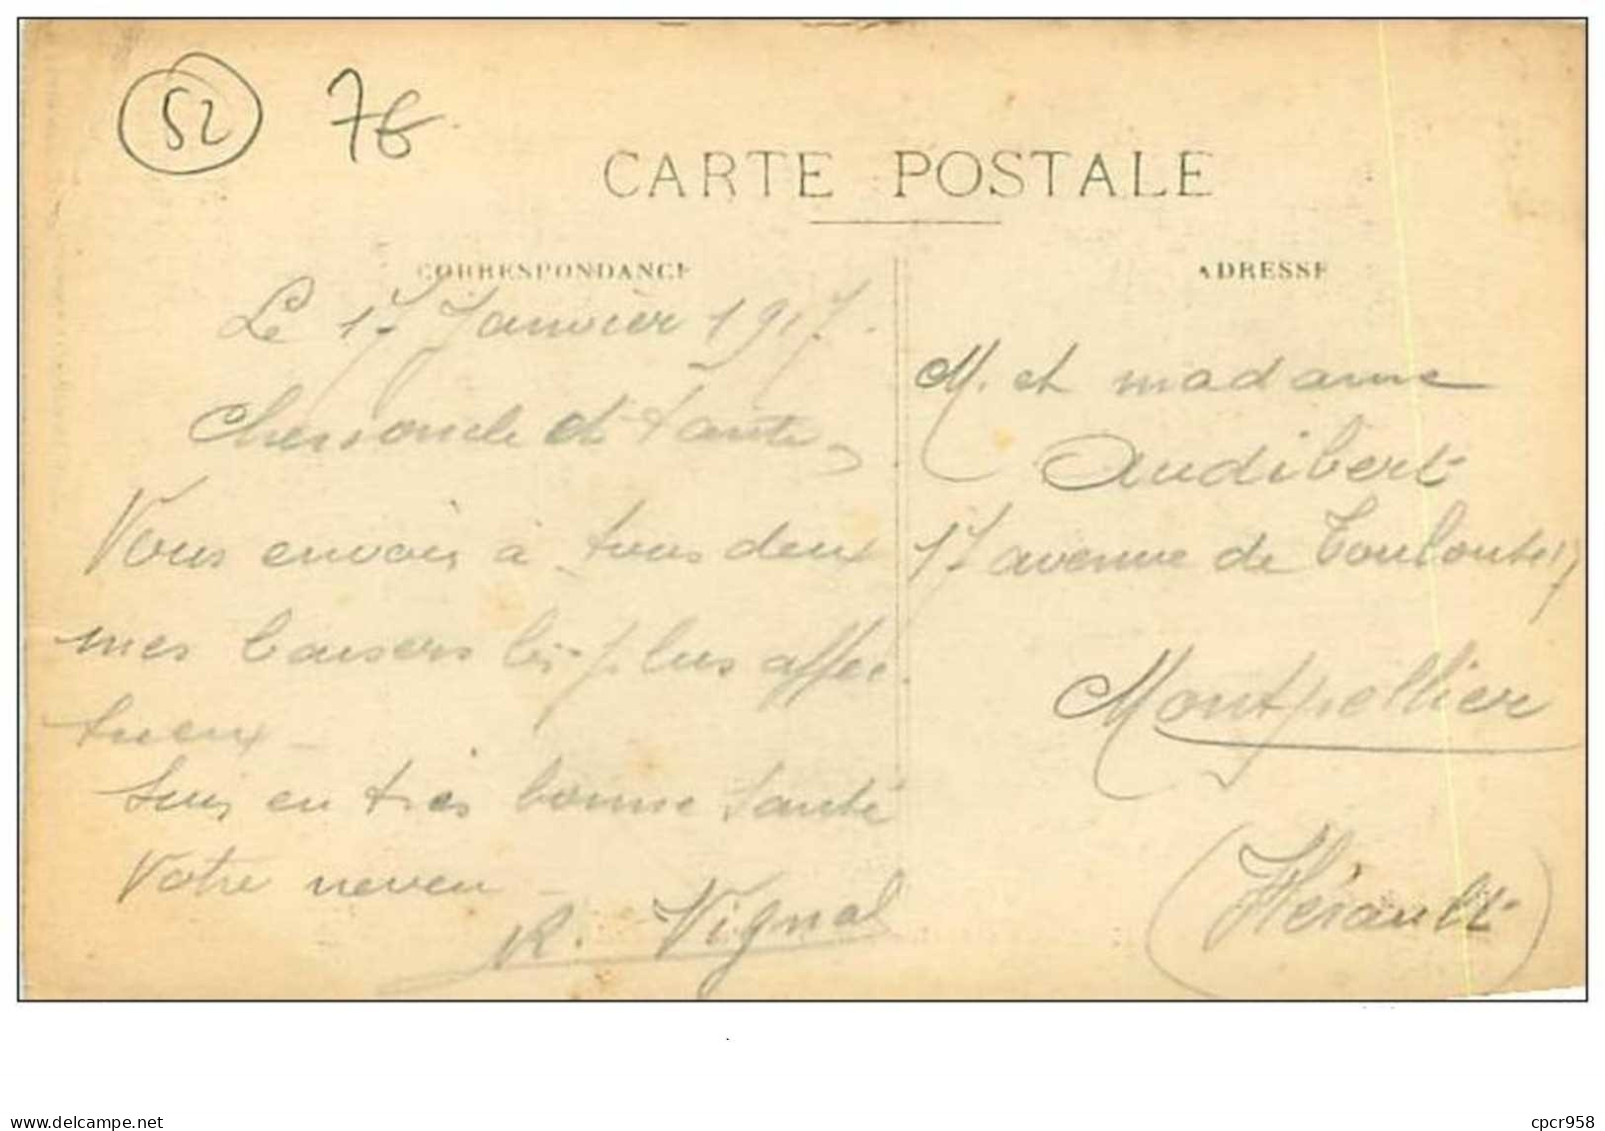 52 76
CARTE POSTALE
CORRESPONDANCE
Le 17 Janvier 1917.
Chers oncle et tante,
Vous envois à tous deux
mes baisers les plus affec-
tueux -
Suis en très bonne santé
Votre neveu -
R. Vignal
ADRESSE
M. et madame
Audibert
17 avenue de Toulouse 17
Montpellier
(Hérault)
delcampe.net
cpcr958